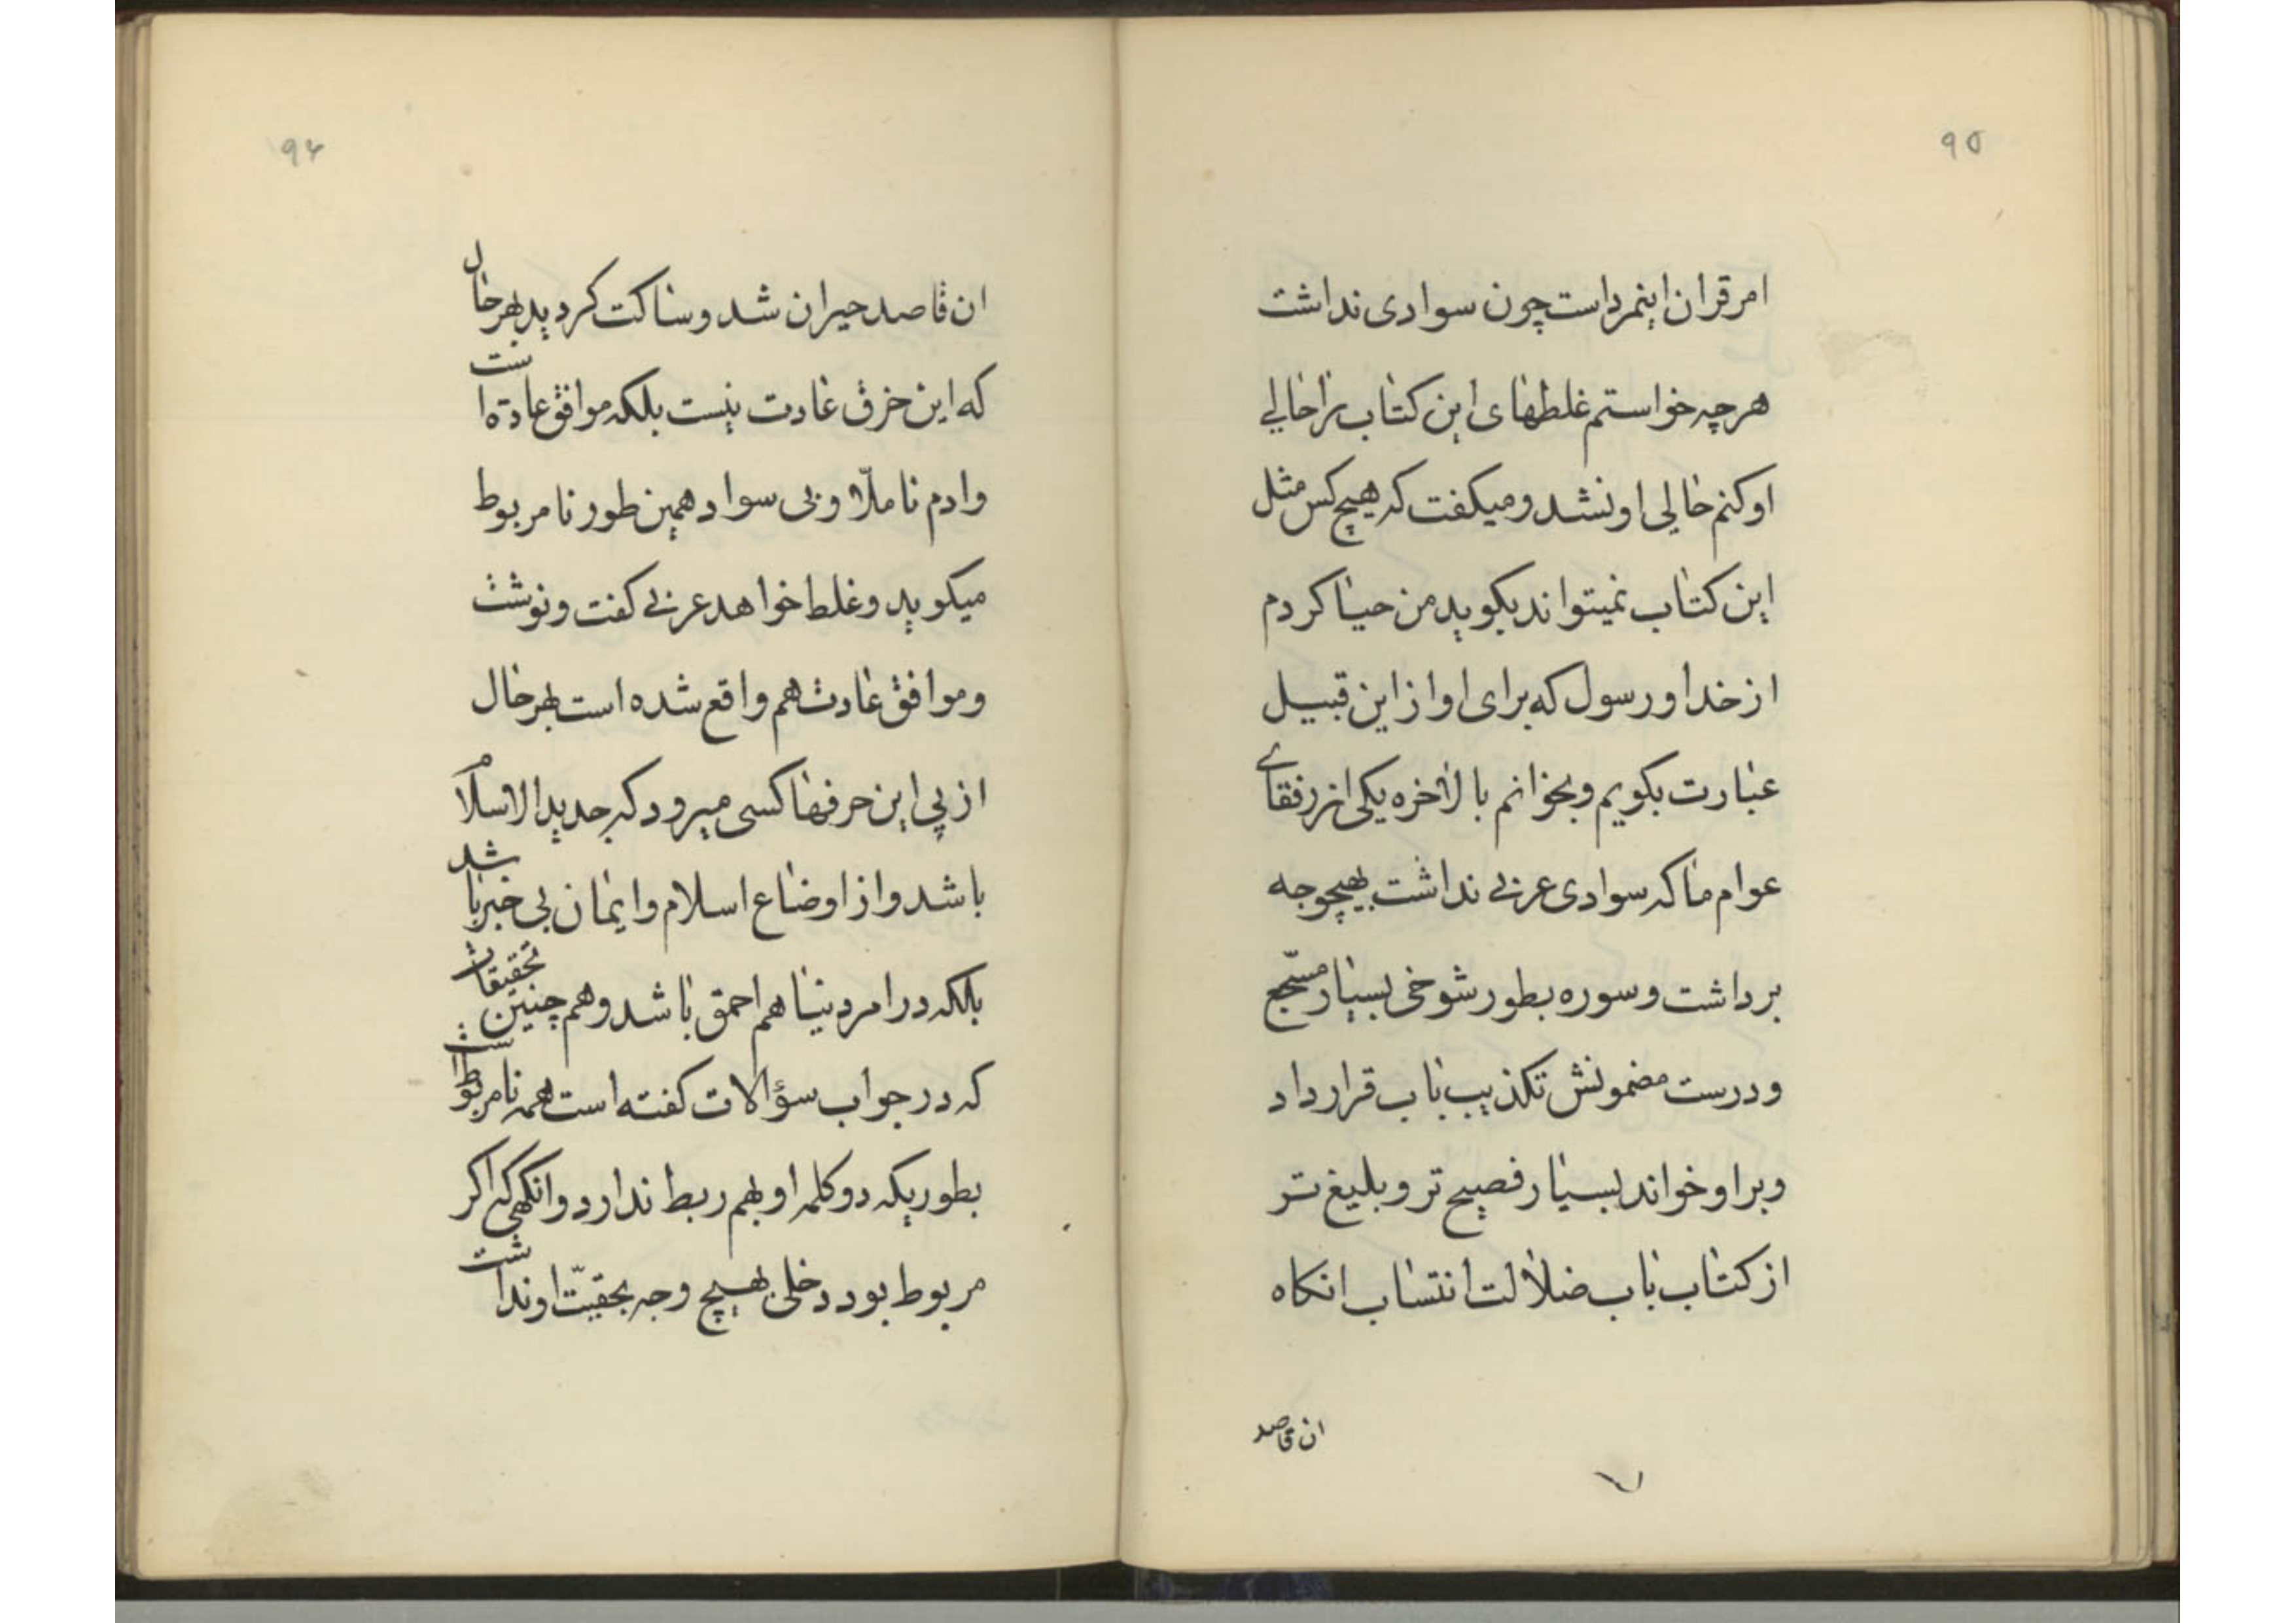 ۹۵
امر قران اینمرد است چون سوادی نداشت
هر چه خواستم غلطهای این کتاب را حالی
او کنم حالی او نشد و میکفت که هیچ کس مثل
این کتاب نمیتواند بکوید من حیا کردم
از خدا و رسول که برای او از این قبیل
عبارت بکویم و بخوانم بالاخره یکی از رفقای
عوام ما که سوادی عربی نداشت بهیچوجه
برداشت و سوره بطور شوخی بسیار مسجّع
و درست مضمونش تکذیب باب قرار داد
و بر او خواند بسیار فصیح تر و بلیغ تر
از کتاب باب ضلالت انتساب انکاه
ان قاصد
۹۶
ان قاصد حیران شد و ساکت کردید بهر حال
که این خرق عادت نیست بلکه موافق عادة است
و ادم نا ملّا و بی سواد همین طور نامربوط
میکوید و غلط خواهد عربی کفت و نوشت
و موافق عادت هم واقع شده است بهر حال
از پی این حرفها کسی میرود که جدید الاسلام
باشد و از اوضاع اسلام و ایمان بی خبر باشد
بلکه در امر دنیا هم احمق باشد و هم چنین تحقیقات
که در جواب سؤالات کفته است همه نامربوط است
بطوریکه دو کلمه او بهم ربط ندارد و انکهی که اکر
مربوط بود دخلی بهیچ وجه بحقیّت او نداشت